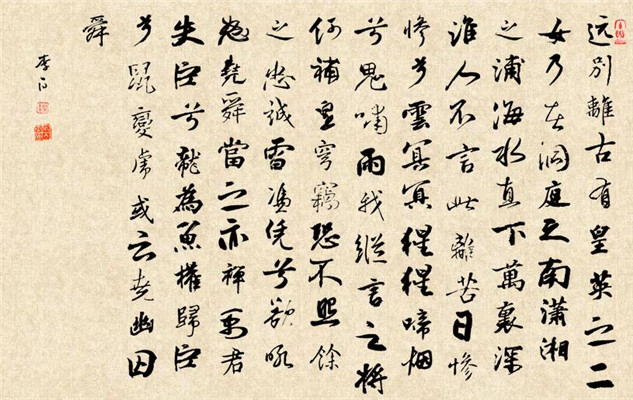 远別離古有皇英之二
女乃在洞庭之南瀟湘
之浦海水直下萬裏深
誰人不言此離苦日慘
慘兮雲冥冥猩猩啼烟
兮鬼嘯雨我縱言之將
何補皇穹竊恐不照餘
之忠誠雷憑凭兮欲吼
怒堯舜當之亦禪禹君
失臣兮龍為魚權歸臣
兮鼠變虎或云堯幽囚
舜
李白